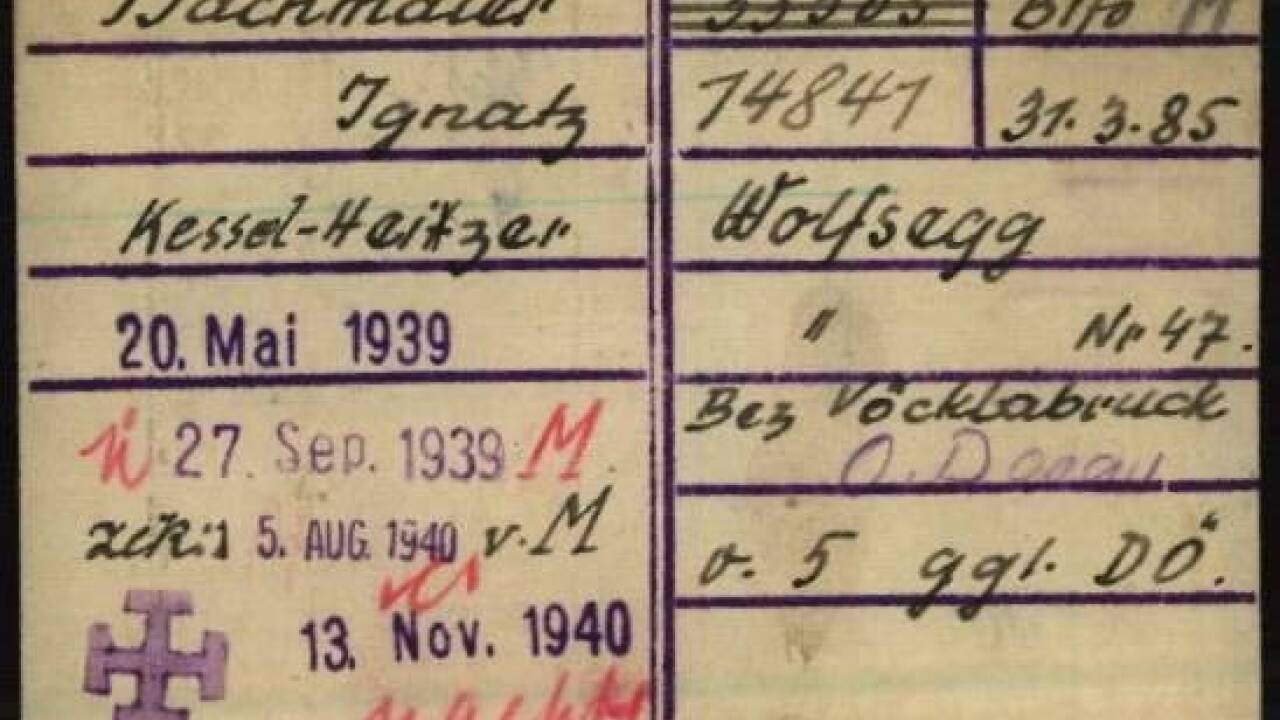 Bachmaier 33905
Ignatz 14841 31.3.85
Kessel-Heitzer Wolfsegg
20. Mai 1939 " Nr 47.
Bez Vöcklabruck
ü 27. Sep. 1939 M
5. AUG. 1940 v. M v. 5 ggl. DÖ.
13. Nov. 1940